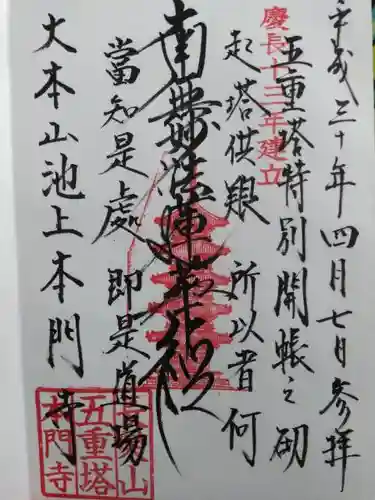 平成三十年四月七日参拝
五重塔特別開帳之砌
慶長十三年建立
起塔供養 所以者何
南無妙法蓮華経
當知是處 即是道場
大本山池上本門寺
大本山
五重塔
本門寺